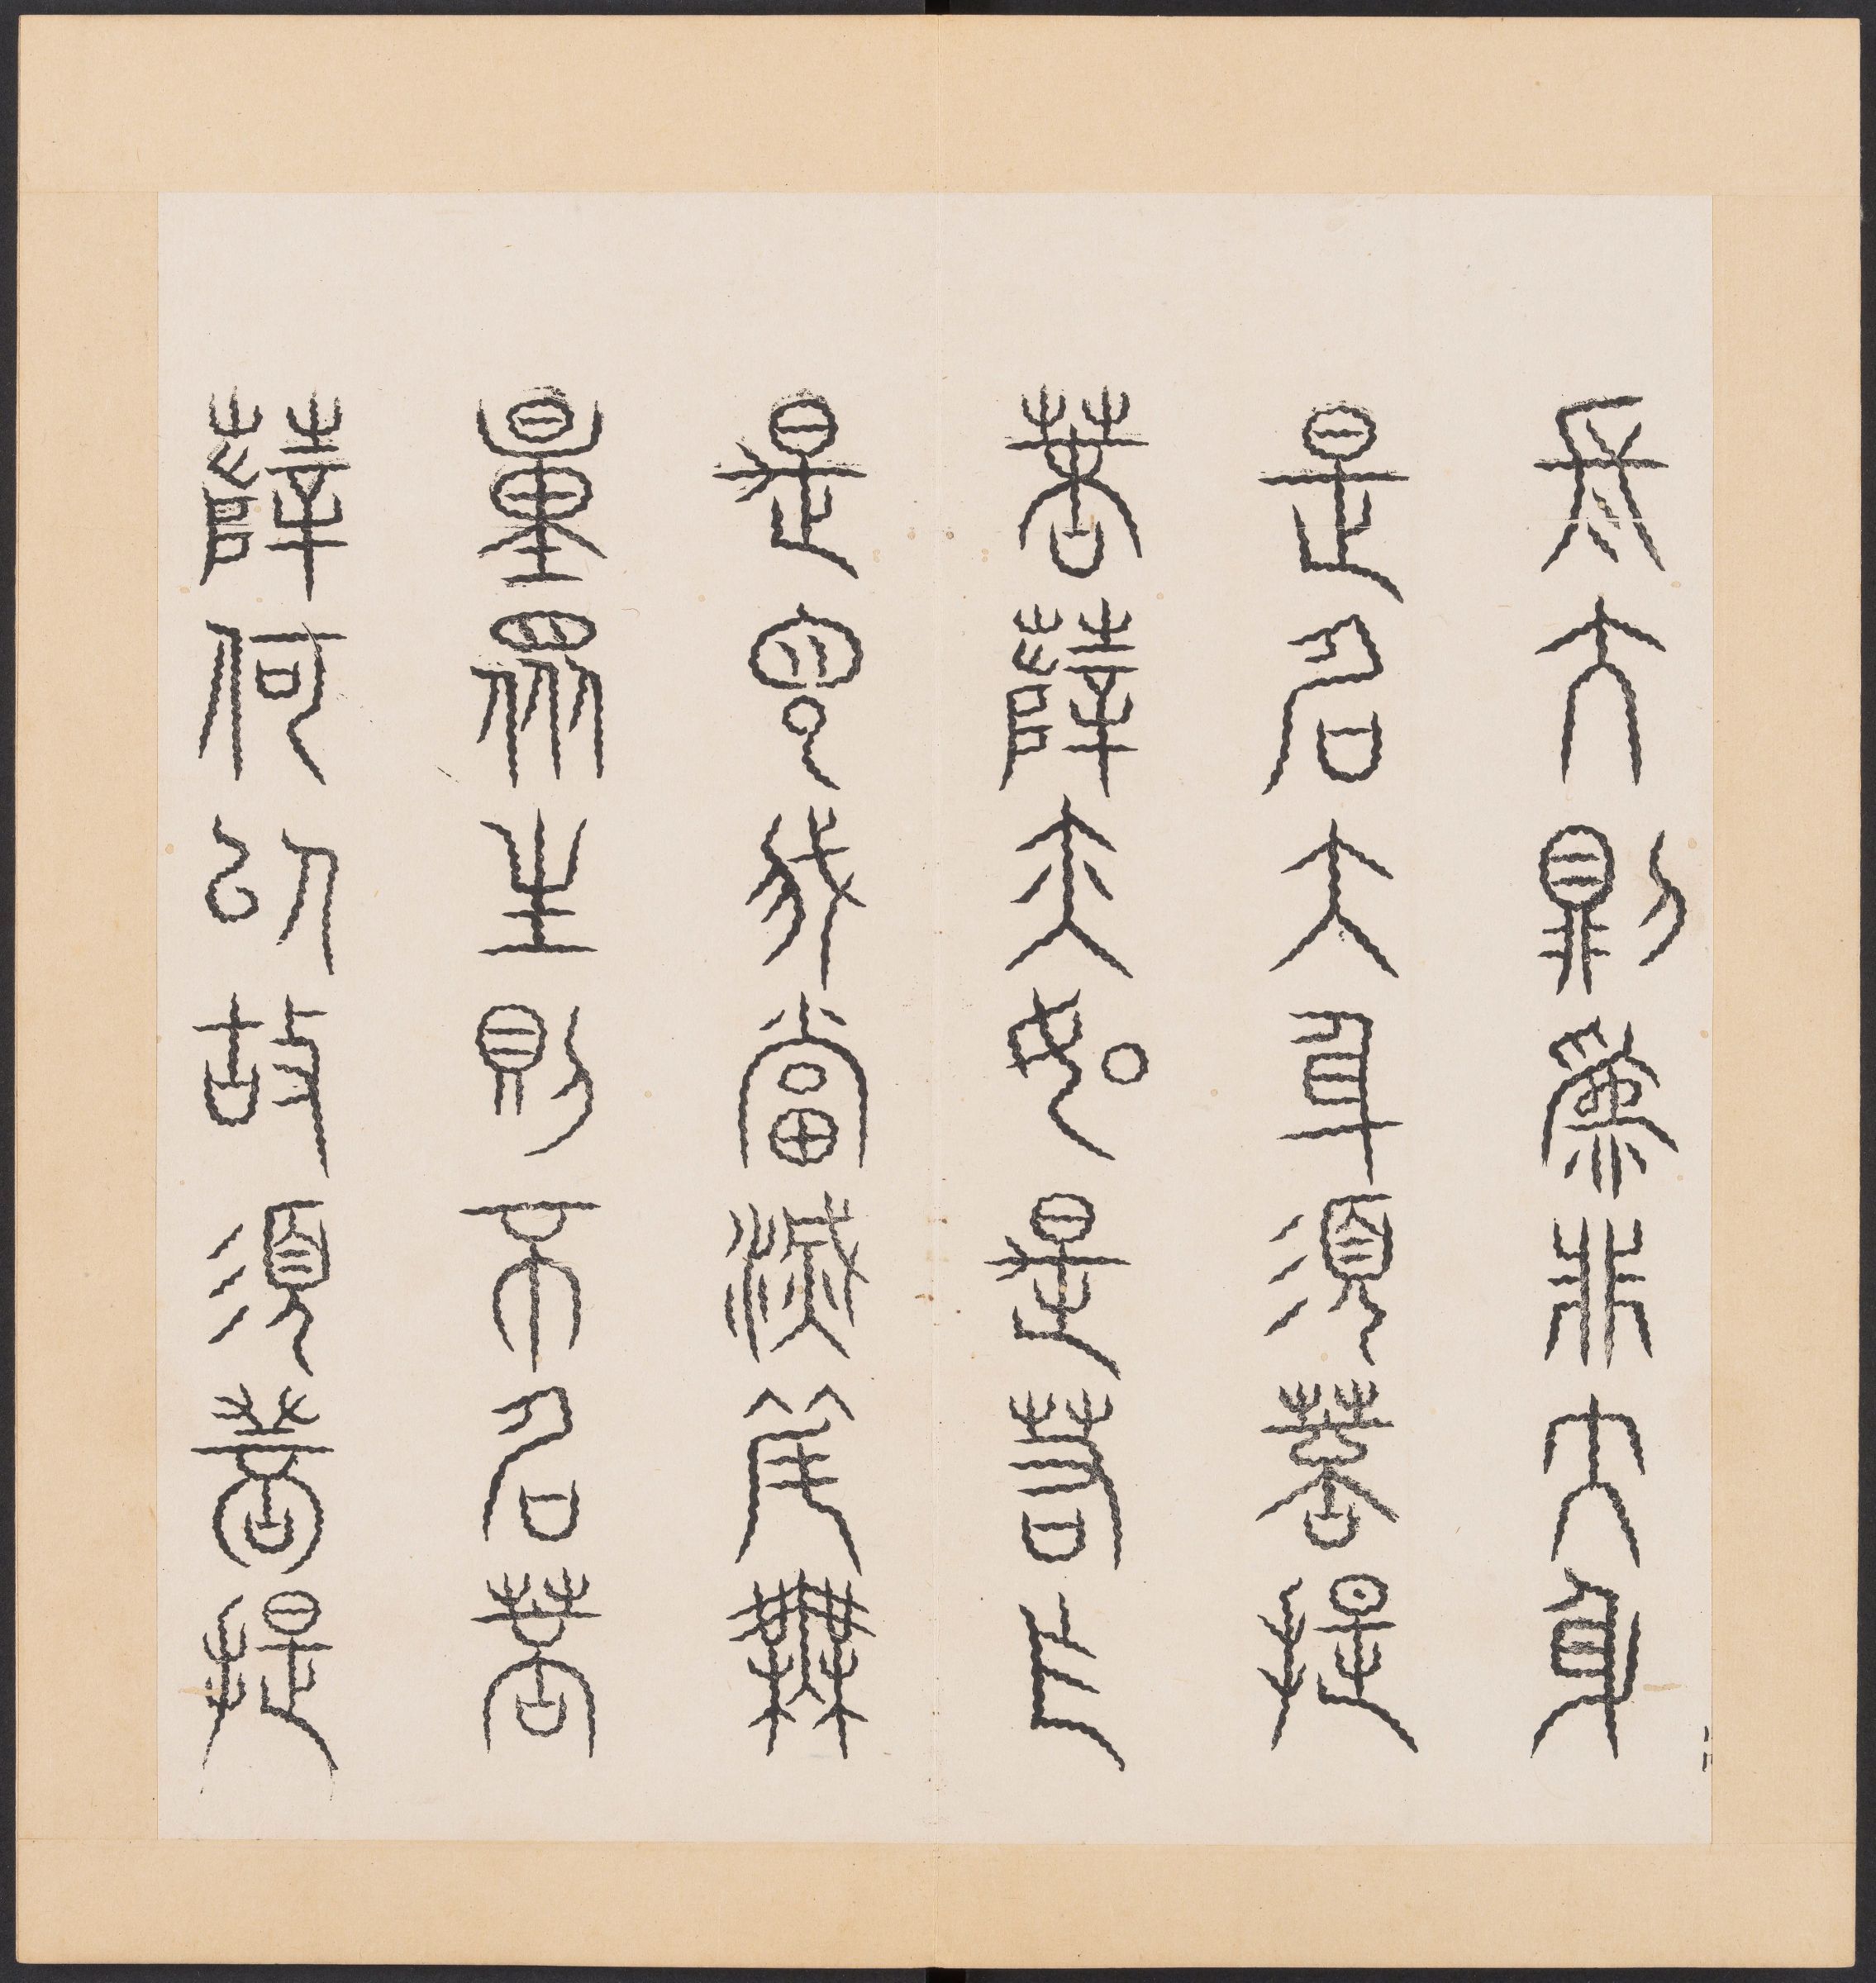 長大則為非大身
是名大身須菩提
菩薩亦如是若作
是言我當滅度無
量眾生則不名菩
薩何以故須菩提